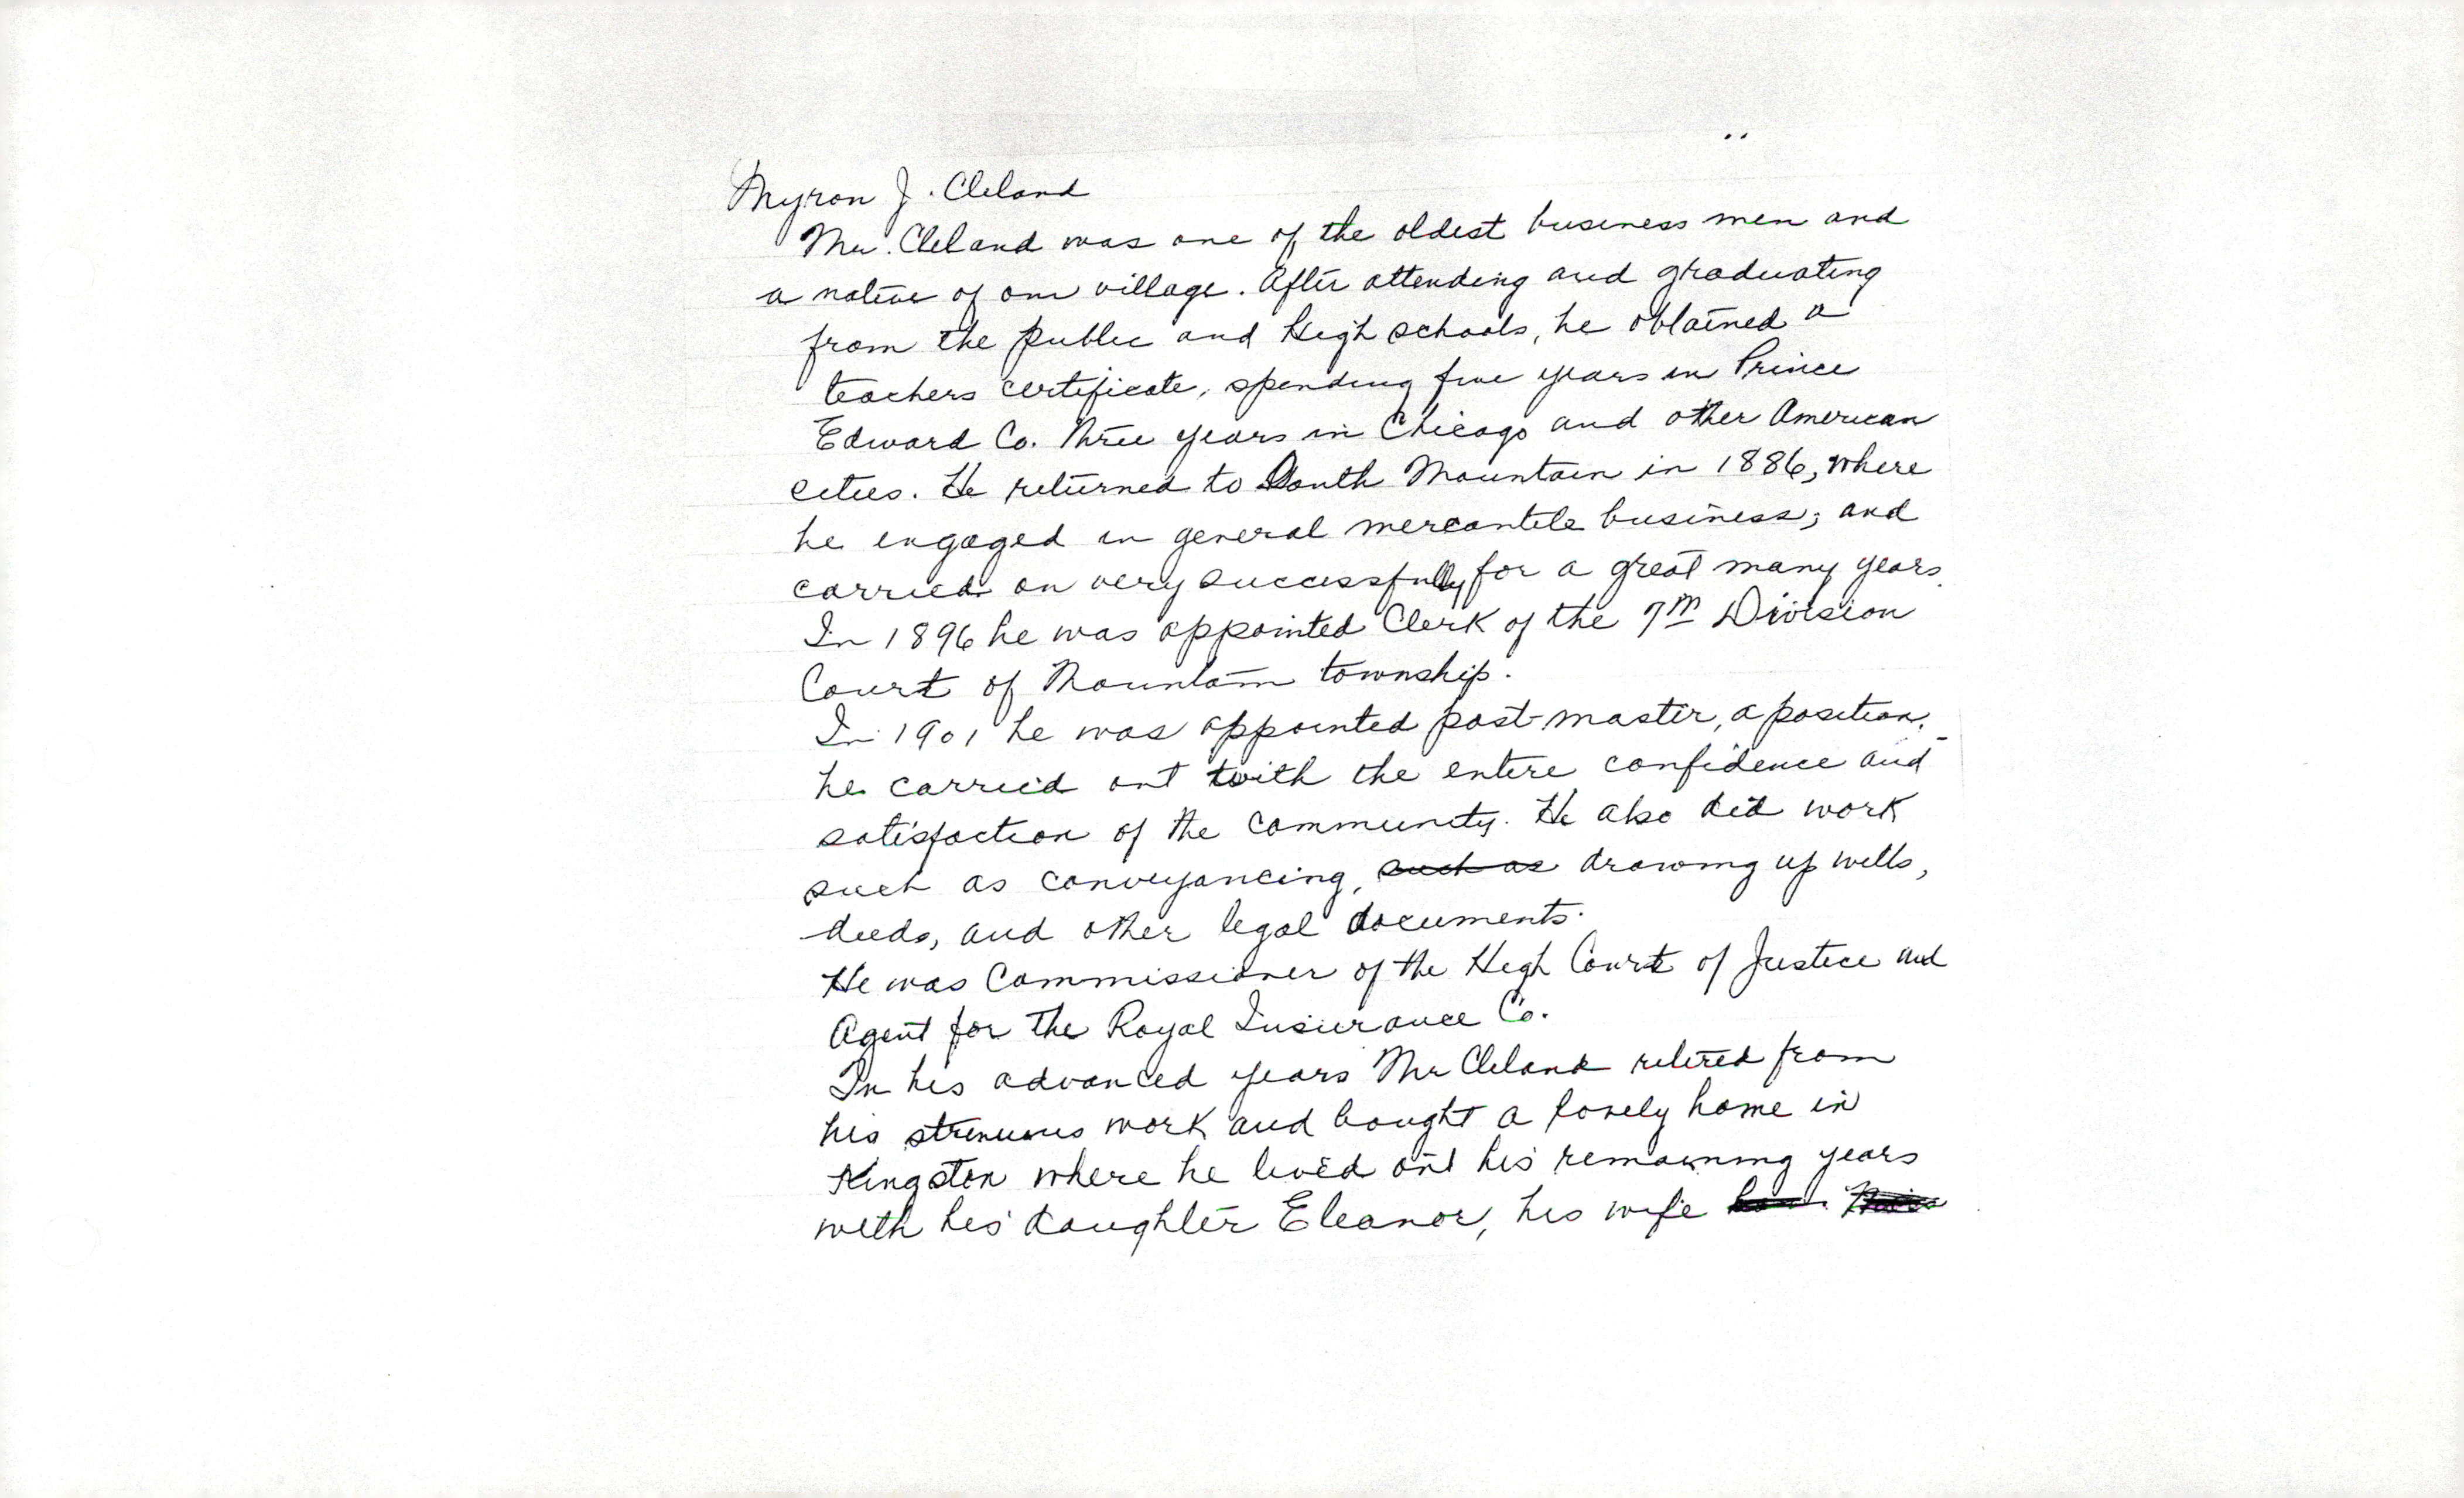 Myron J. Cleland
Mr. Cleland was one of the oldest business men and
a native of our village. After attending and graduating
from the public and High schools, he obtained a
teachers certificate, spending five years in Prince
Edward Co. Three years in Chicago and other American
cities. He returned to South Mountain in 1886, where
he engaged in general mercantile business; and
carried on very successfully for a great many years.
In 1896 he was appointed Clerk of the 7th Division
Court of Mountain township.
In 1901 he was appointed post-master, a position,
he carried out with the entire confidence and
satisfaction of the community. He also did work
such as conveyancing, such as drawing up wills,
deeds, and other legal documents.
He was Commissioner of the High Court of Justice and
Agent for the Royal Insurance Co.
In his advanced years Mr Cleland retired from
his strenuous work and bought a lovely home in
Kingston where he lived out his remaining years
with his daughter Eleanor, his wife